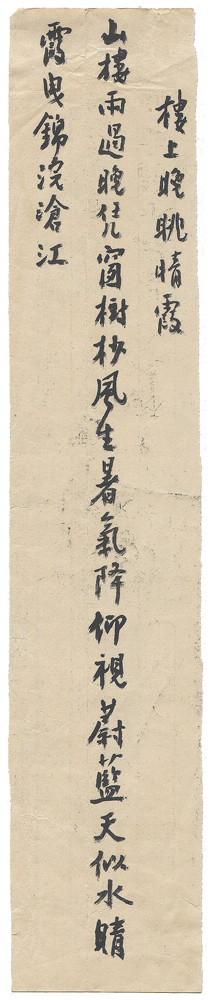 樓上晚眺晴霞
山樓雨過晚凭窗樹杪風生暑氣降仰視蔚藍天似水晴
霞曳錦浣滄江